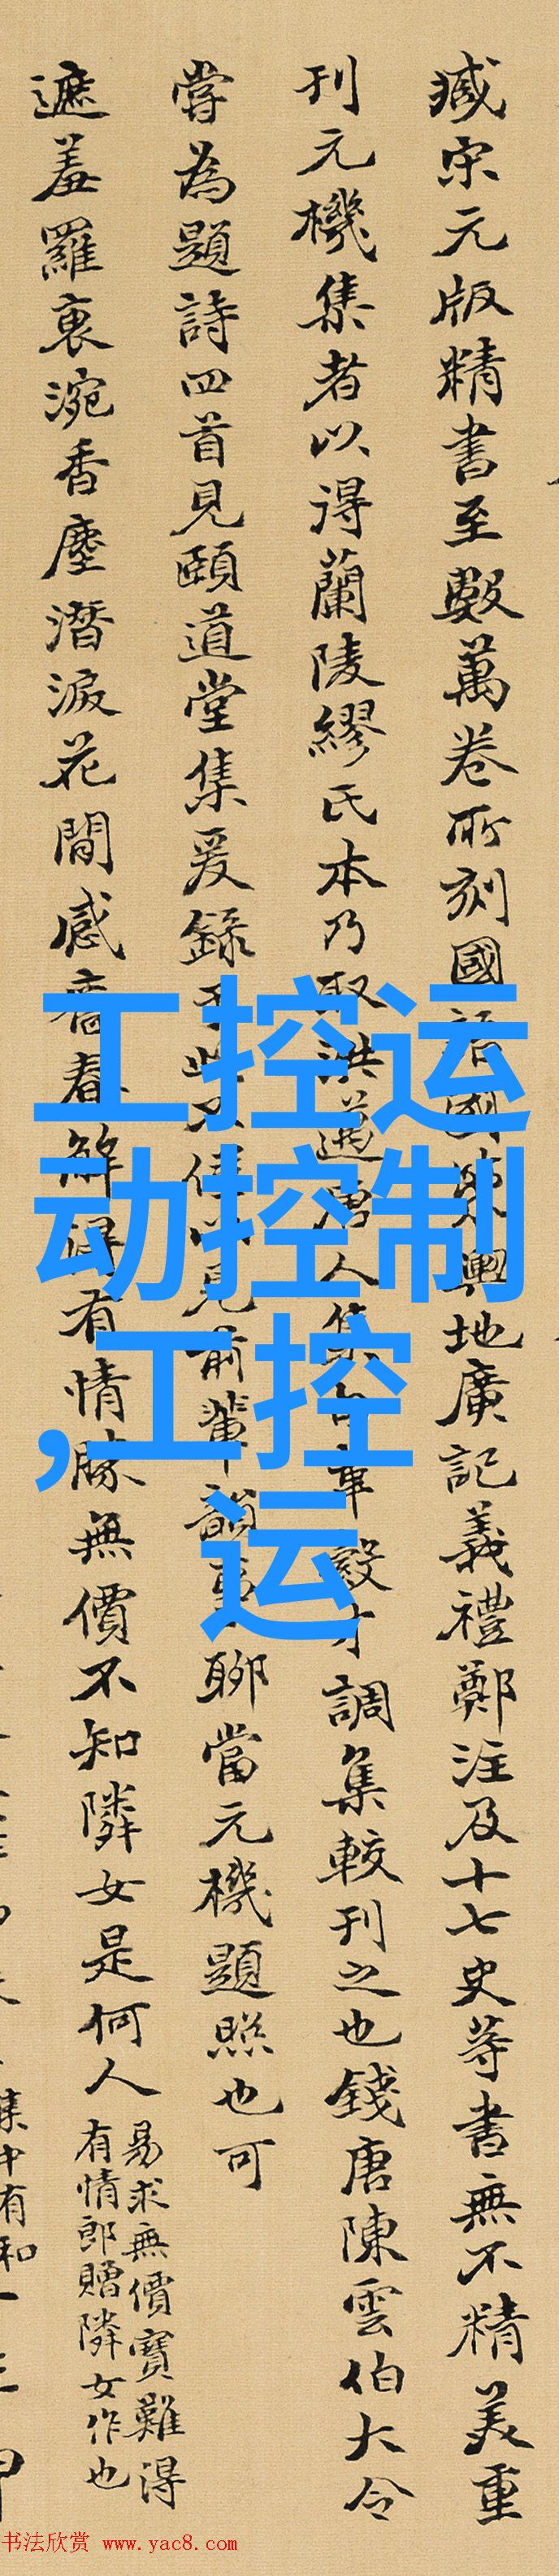 臧宋元版精書至數萬卷所刻國語國策輿地廣記義禮鄭注及十七史等書無不精美重
刊元機集者以得蘭陵繆氏本乃取洪邁唐人集較刊之也錢唐陳雲伯大令
嘗為題詩四首見頤道堂集爰錄于此見前輩韻事聊當元機題照也可
遮羞羅裏涴香塵潛淚花間感舊春解得有情勝無價不知隣女是何人
易求無價寶難得
有情郎贈隣女作也
集中有和
工控运
动控制
,工控
运
书法欣赏 www.yac8.com